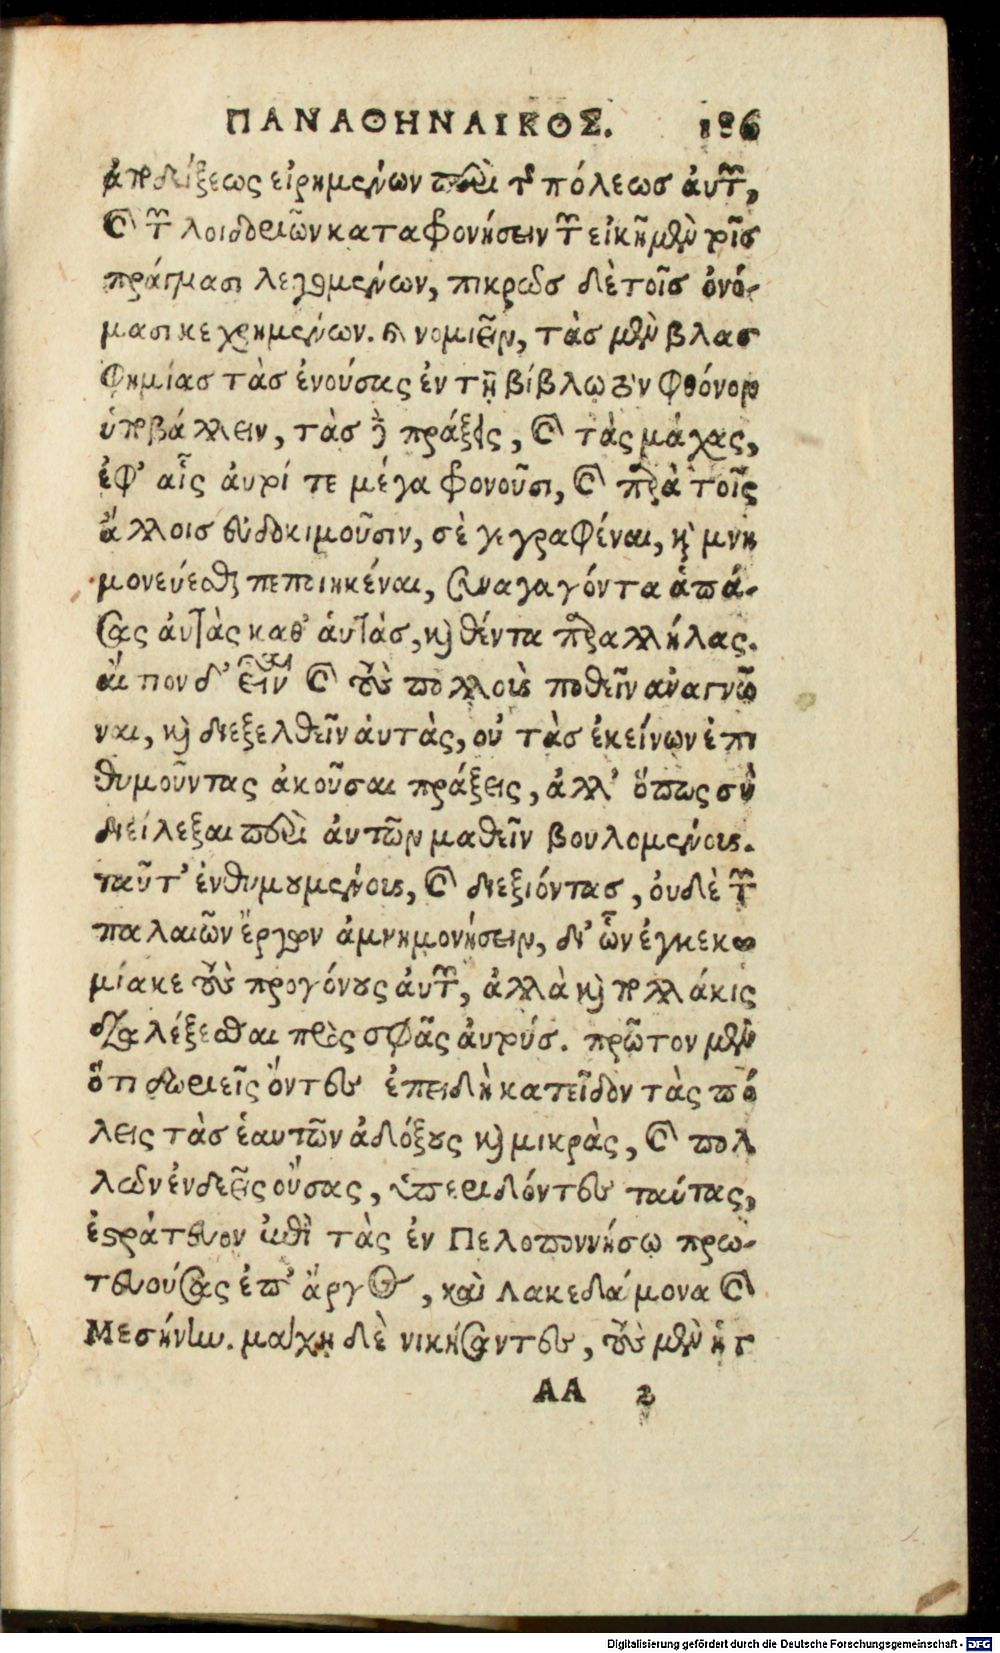 ΠΑΝΑΘΗΝΑΙΚΟΣ. 186
ἀποδείξεως εἰρημένων περὶ τῆς πόλεως αὐτῶν,
καὶ τῶν λοιδοριῶν καταφρονήσειν τῶν εἰκῆ μὲν τοῖς
πράγμασι λεγομένων, πικρῶς δὲ τοῖς ὀνό-
μασι κεχρημένων. καὶ νομιεῖν, τὰς μὲν βλασ
φημίας τὰς ἐνούσας ἐν τῇ βίβλῳ τὸν φθόνον
ὑποβάλλειν, τὰς δὲ πράξεις, καὶ τὰς μάχας,
ἐφ' αἷς αὐτοί τε μέγα φρονοῦσι, καὶ παρὰ τοῖς
ἄλλοις εὐδοκιμοῦσιν, σὲ γεγραφέναι, καὶ μνη
μονεύεσθαι πεποιηκέναι, συναγαγόντα ἁπά-
σας αὐτὰς καθ' αὑτὰς, καὶ θέντα παραλλήλας.
αἴτιον δ' εἶναι καὶ τοῦ πολλοὺς ποθεῖν ἀναγνῶ
ναι, καὶ διεξελθεῖν αὐτὰς, οὐ τὰς ἐκείνων ἐπι
θυμοῦντας ἀκοῦσαι πράξεις, ἀλλ' ὅπως σὺ
διείλεξαι περὶ αὐτῶν μαθεῖν βουλομένους.
ταῦτ' ἐνθυμουμένους, καὶ διεξιόντας, οὐδὲ τῶν
παλαιῶν ἔργων ἀμνημονήσειν, δι' ὧν ἐγκεκω
μίακε τοὺς προγόνους αὐτῶν, ἀλλὰ καὶ πολλάκις
διαλέξεσθαι πρὸς σφᾶς αὐτούς. πρῶτον μὲν
ὅτι δωριεῖς ὄντες ἐπειδὴ κατεῖδον τὰς πό
λεις τὰς ἑαυτῶν ἀδόξους καὶ μικρὰς, καὶ πολ
λῶν ἐνδεεῖς οὔσας, ὑπεριδόντες ταύτας,
ἐστράτευον ἐπὶ τὰς ἐν Πελοποννήσῳ πρω-
τευούσας ἐπ' ἄργος, καὶ Λακεδαίμονα καὶ
Μεσήνην. μάχῃ δὲ νικήσαντες, τοὺς μὲν ἡτ
ΑΑ 2
Digitalisierung gefördert durch die Deutsche Forschungsgemeinschaft - DFG